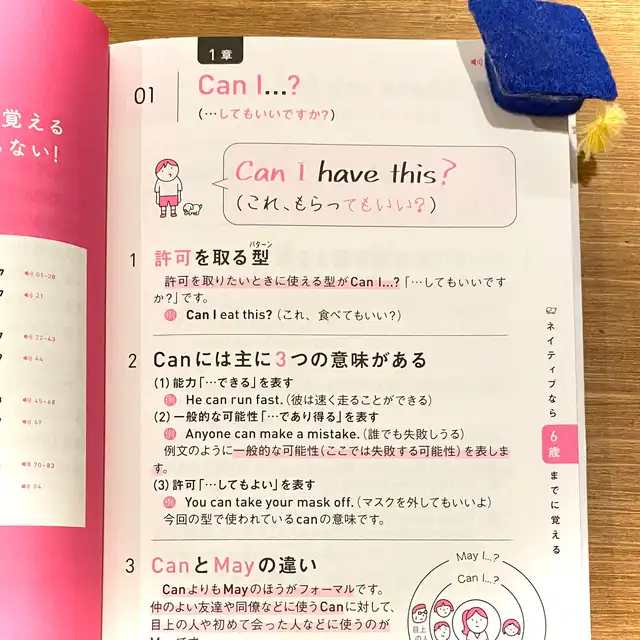 覚える
ない!
01-20
21
22-43
44
45-68
69
70-83
84
1章
01
Can I...?
(…してもいいですか?)
Can I have this?
(これ、もらってもいい?)
1 許可を取る型
パターン
許可を取りたいときに使える型がCan I...?「…してもいいです
か?」です。
例 Can I eat this?(これ、食べてもいい?)
2 Canには主に3つの意味がある
(1) 能力「…できる」を表す
例 He can run fast.(彼は速く走ることができる)
(2) 一般的な可能性「…であり得る」を表す
例 Anyone can make a mistake.(誰でも失敗しうる)
例文のように一般的な可能性(ここでは失敗する可能性)を表しま
す。
(3) 許可「…してもよい」を表す
例 You can take your mask off.(マスクを外してもいいよ)
今回の型で使われているcanの意味です。
3 CanとMayの違い
CanよりもMayのほうがフォーマルです。
仲のよい友達や同僚などに使うCanに対して、
目上の人や初めて会った人などに使うのが
May I...?
Can I...?
目上
ネイティブなら
6歳
までに覚える